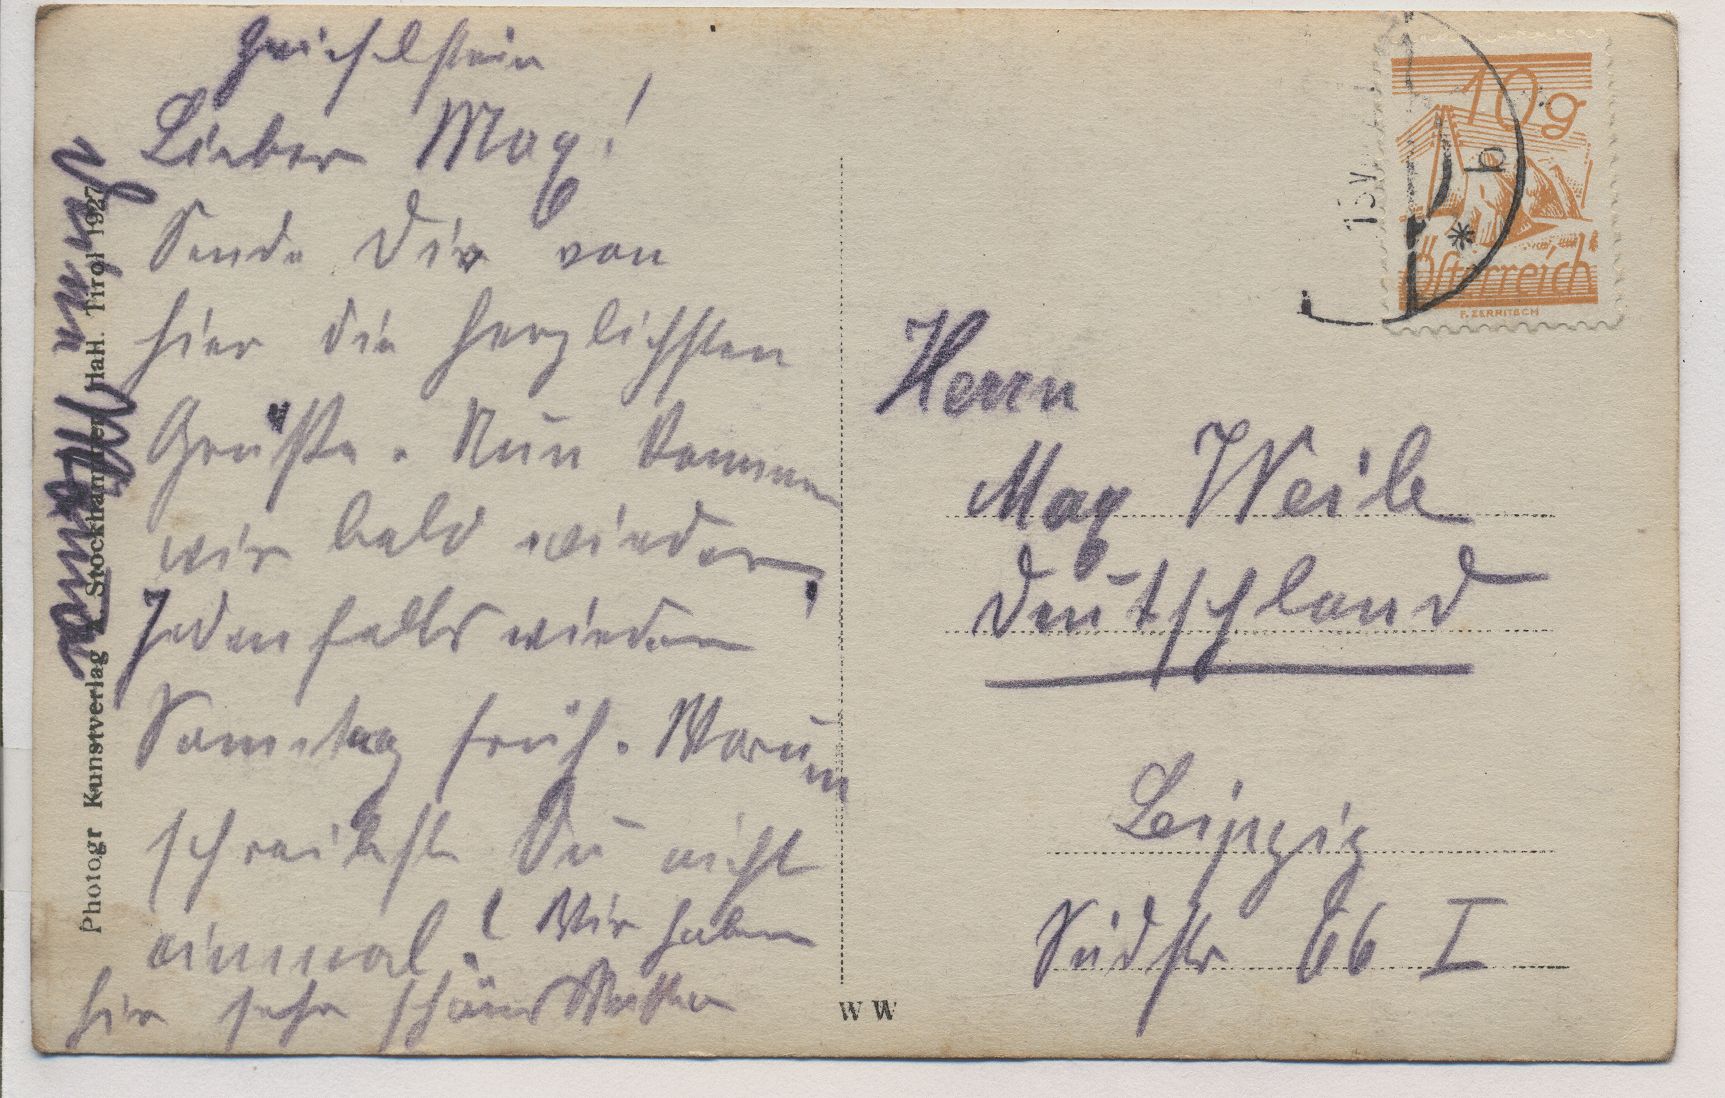 Lieber Max!
Sende Dir von
hier die herzlichsten
Grüße. Nun kommen
wir bald wieder,
Jedenfalls wieder
Samstag früh. Warum
schreibst Du nicht
einmal? Wir haben
hier sehr schönes Wetter
Photogr Kunstverlag A. Stockhammer Hall. Tirol 1927
10g
Österreich
F. ZERRITSCH
b
*
Herrn
Max Weile
Deutschland
Leipzig
Südstr 66 I
W W